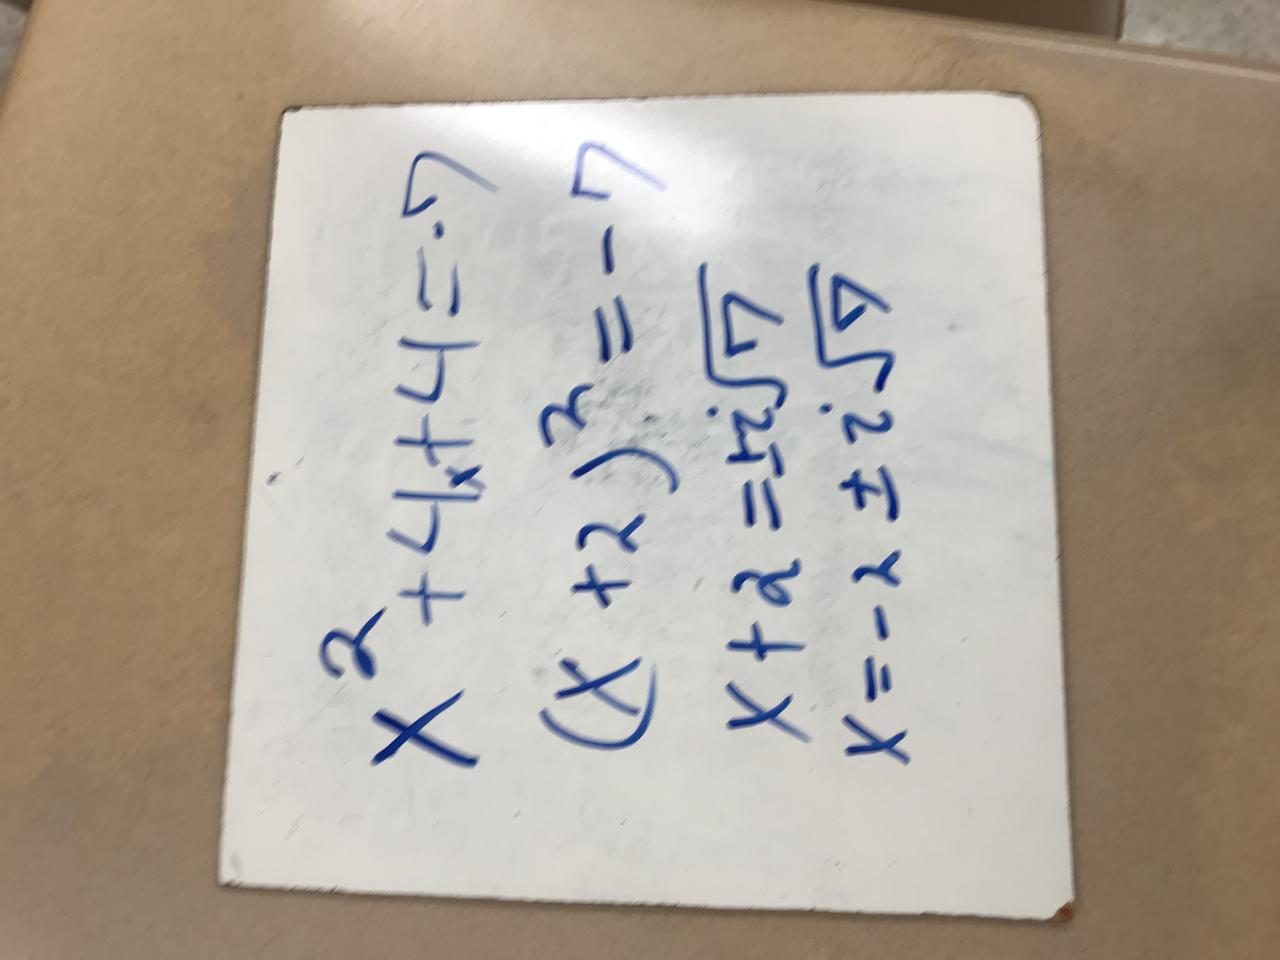 x² + 4x + 4 = -7
(x + 2)² = -7
x + 2 = ±i√7
x = -2 ± i√7